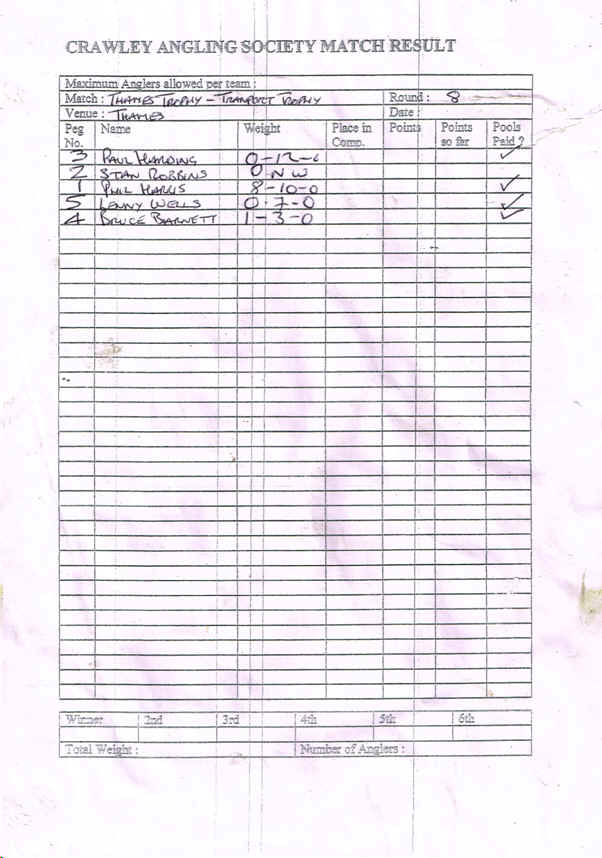 CRAWLEY ANGLING SOCIETY MATCH RESULT
Maximum Anglers allowed per team :
Match : THAMES TROPHY - TRANSPORT TROPHY Round : 8
Venue : THAMES Date :
Peg No. Name Weight Place in Comp. Points Points so far Pools Paid ?
3 PAUL HARDING 0-12-6 ✓
2 STAN ROBBINS DNW
1 PHIL HARRIS 8-10-0 ✓
5 LENNY WELLS 0-7-0 ✓
4 BRUCE BARNETT 1-3-0 ✓
Winner 2nd 3rd 4th 5th 6th
Total Weight : Number of Anglers :